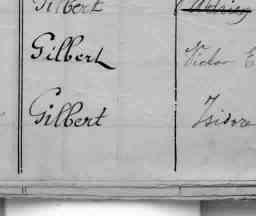 Gilbert
Gilbert Victor E
Gilbert Isidore